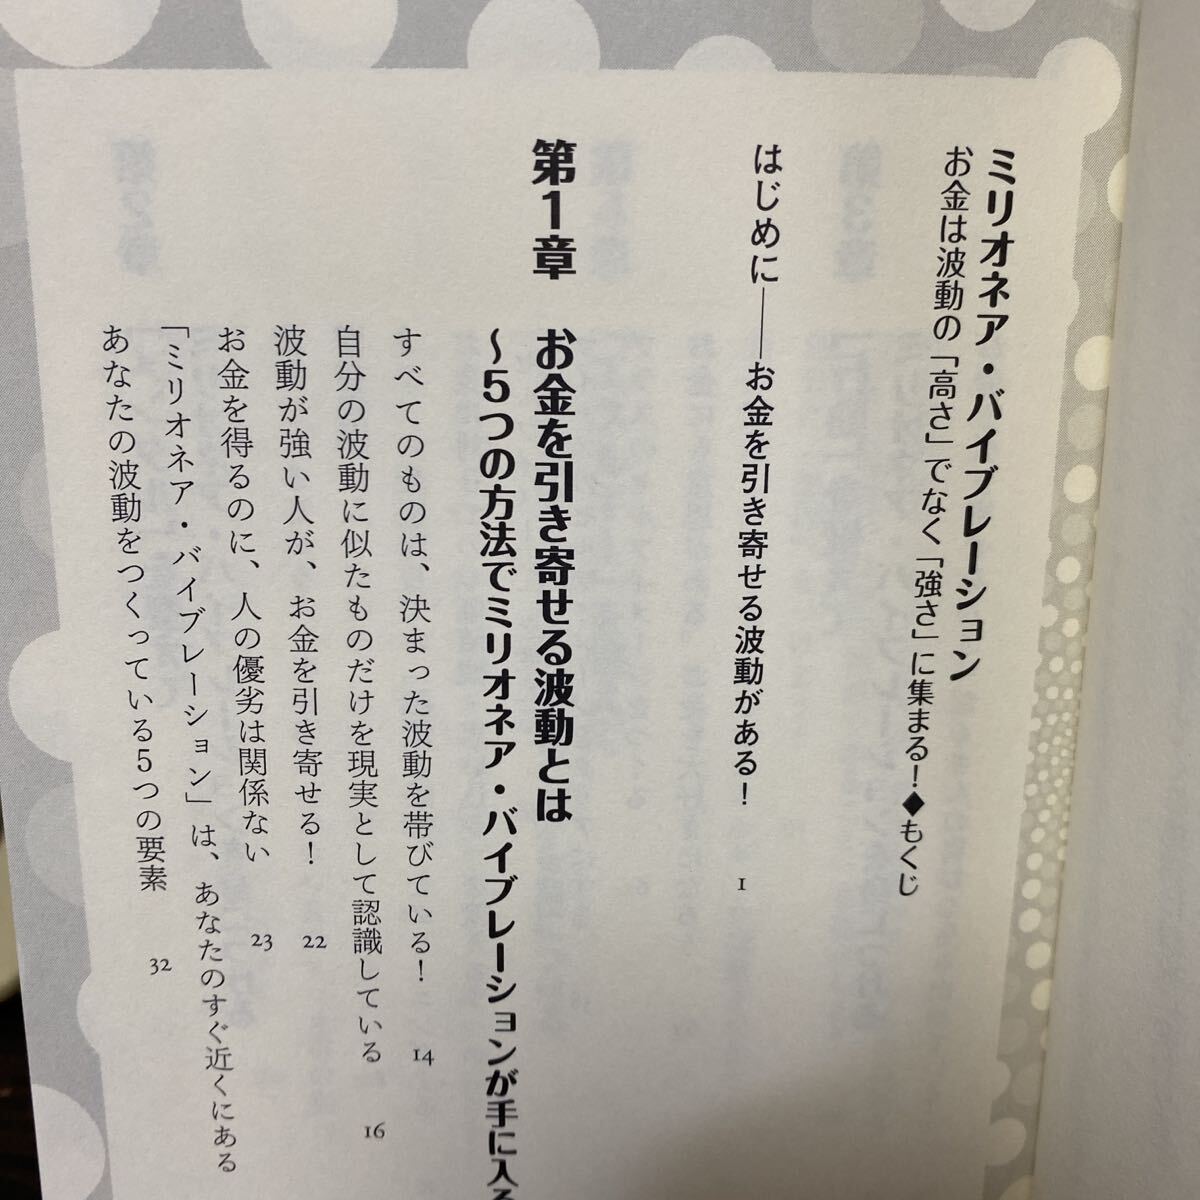 ミリオネア・バイブレーション
お金は波動の「高さ」でなく「強さ」に集まる!◆もくじ
はじめに――お金を引き寄せる波動がある! 1
第1章 お金を引き寄せる波動とは
～5つの方法でミリオネア・バイブレーションが手に入る
すべてのものは、決まった波動を帯びている! 14
自分の波動に似たものだけを現実として認識している 16
波動が強い人が、お金を引き寄せる! 22
お金を得るのに、人の優劣は関係ない 23
「ミリオネア・バイブレーション」は、あなたのすぐ近くにある
あなたの波動をつくっている5つの要素 32